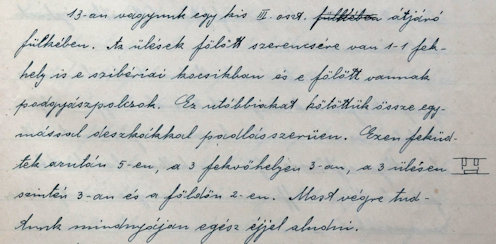 13-an vagyunk egy kis III. oszt. fülkében átjáró
fülkében. Az ülések fölött szerencsére van 1-1 fek-
hely is e szibériai kocsikban és e fölött vannak
podgyászpolczok. Ez utóbbiakat kötöttük össze egy-
mással deszkákkal padlásszerüen. Ezen feküd-
tek azután 5-en, a 3 fekvőhelyen 3-an, a 3 ülésen
szintén 3-an és a földön 2-en. Most végre tud-
tunk mindnyájan egész éjjel aludni.